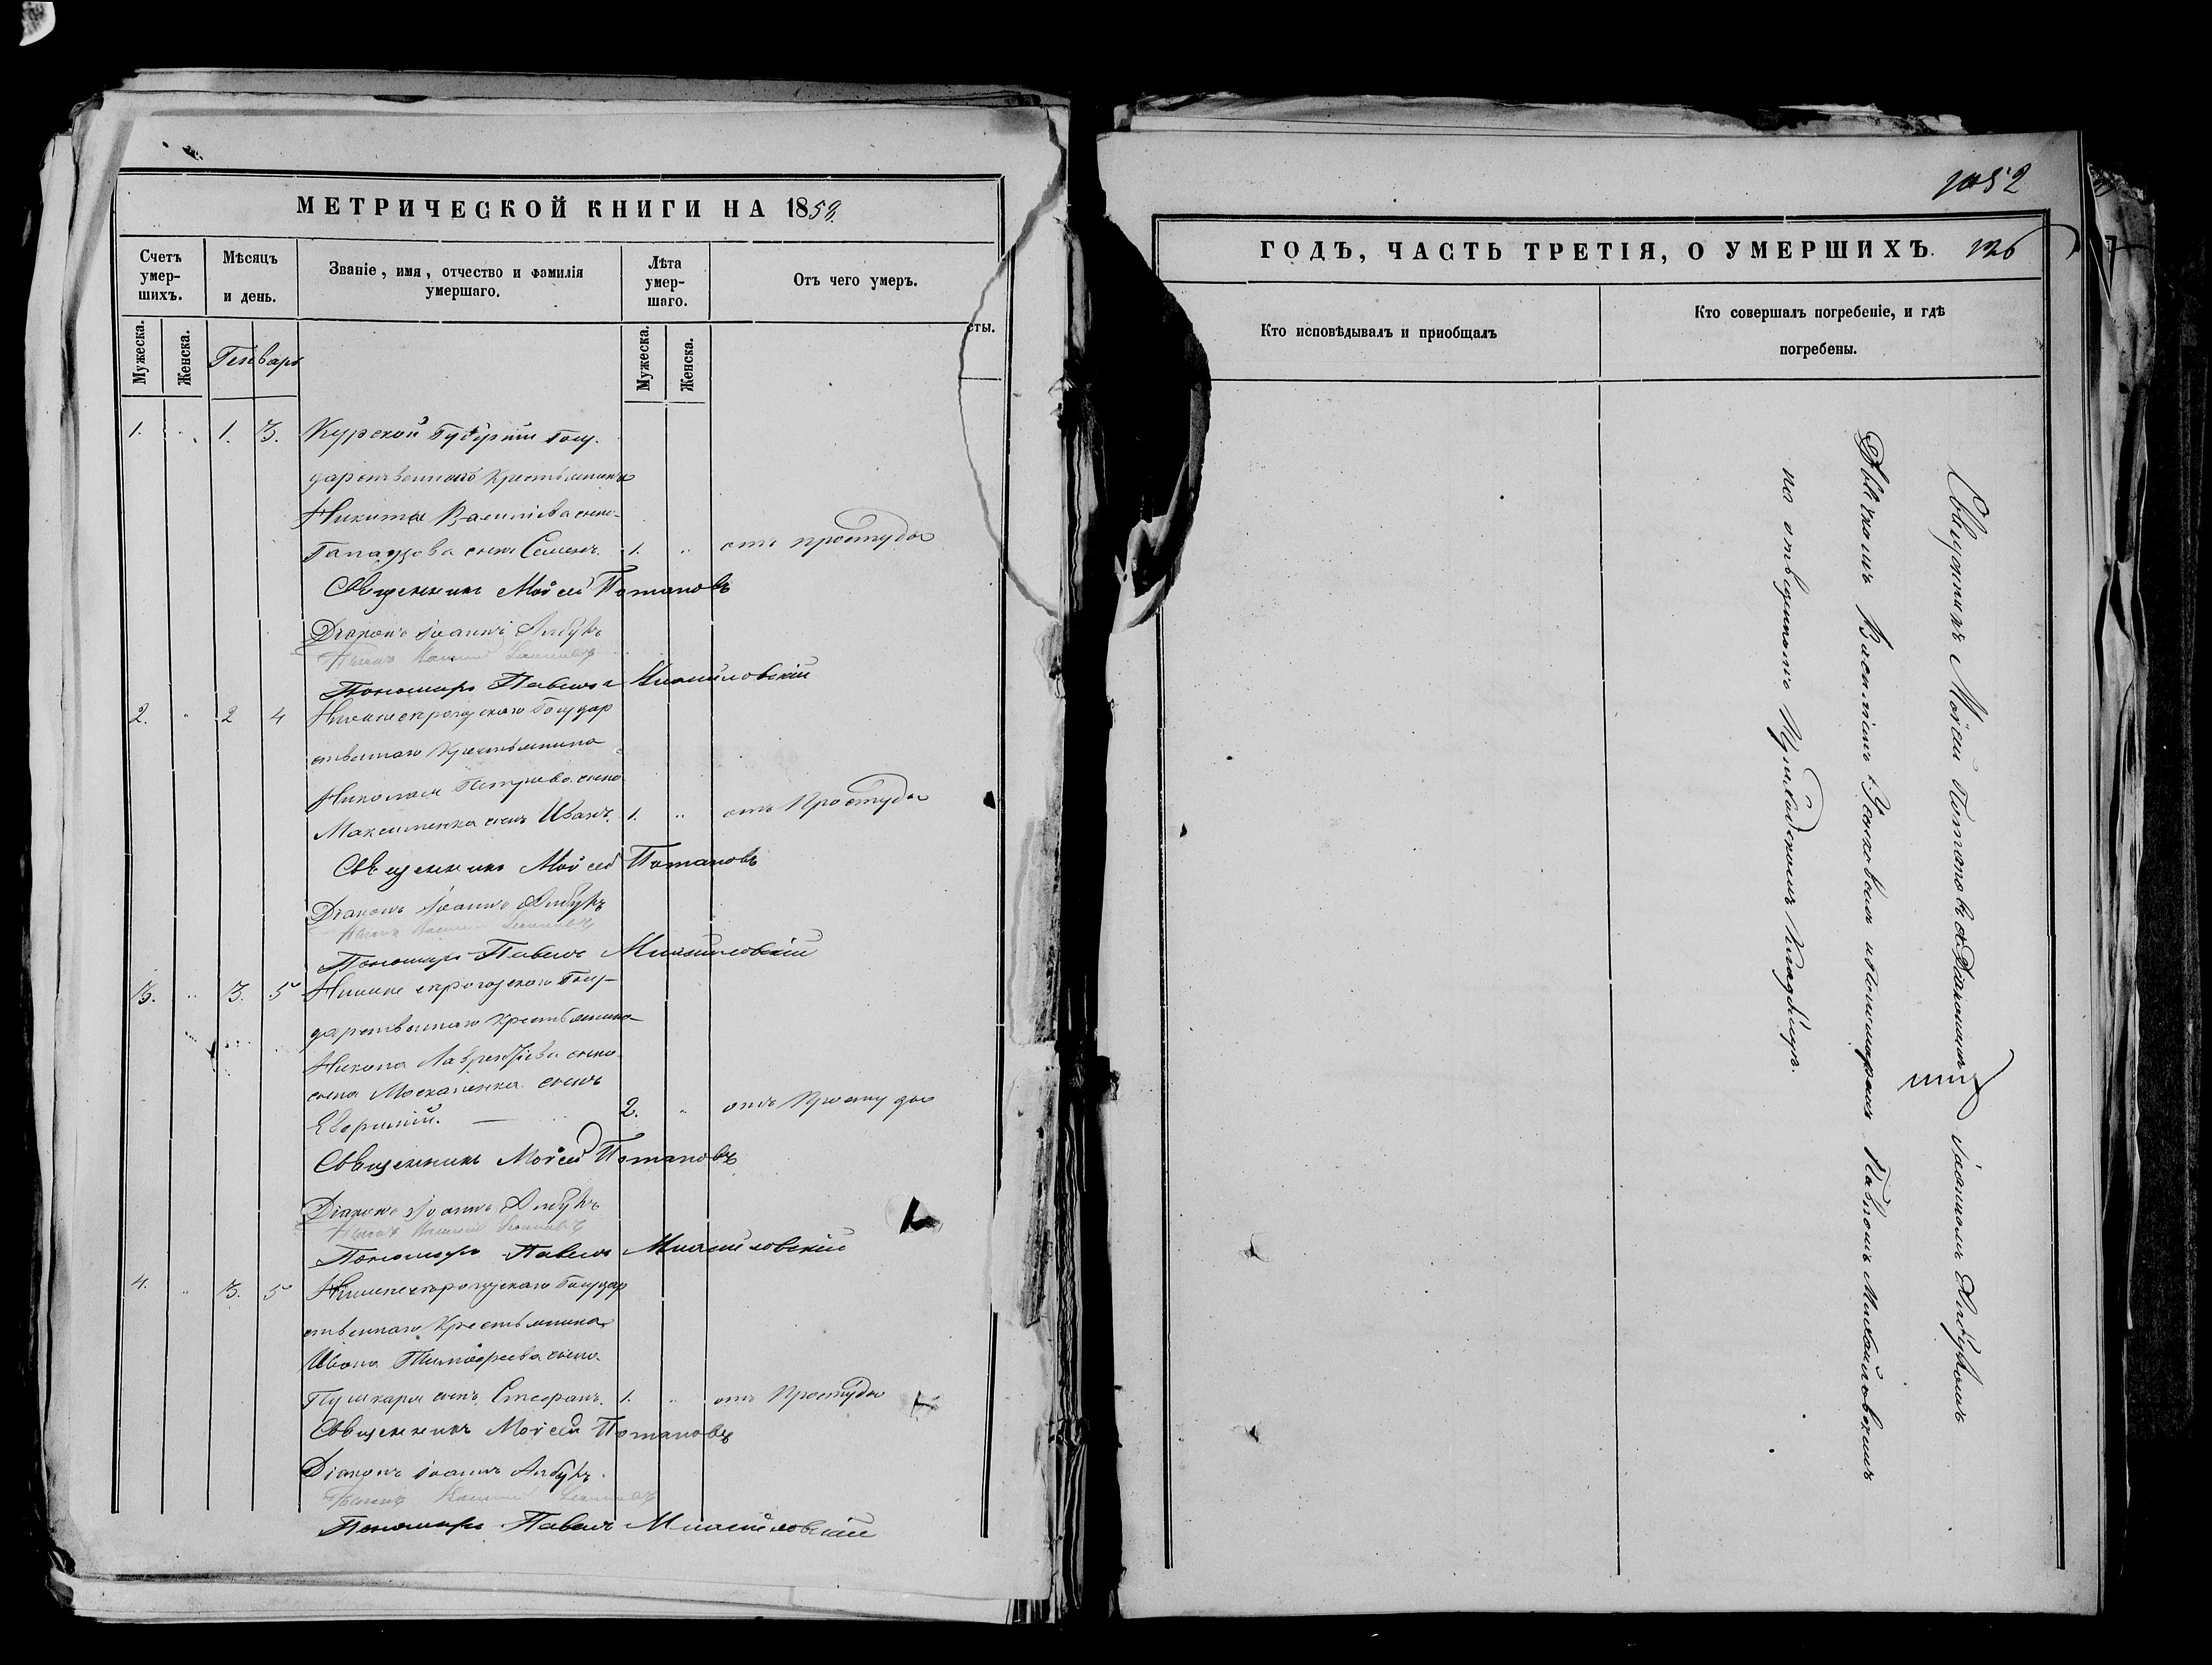 МЕТРИЧЕСКОЙ КНИГИ НА 1859.
Счетъ умер-шихъ.
Мѣсяцъ и день.
Званіе, имя, отчество и фамилія умершаго.
Лѣта умер-шаго.
Отъ чего умеръ.
Мужеска.
Женска.
Генварь
Мужеска.
Женска.
сты.
1. 1. 3. Курской Губерніи Госу-
дарственнаго Крестьянина
Никиты Васильева сына
сынъ Семенъ. 1. " отъ простуды
Священникъ Моѵсей Потаповъ
Діаконъ Іоаннъ
Пономарь Павелъ Михайловскій
2. " 2 4 Государ
ственнаго Крестьянина
Николая Петрова сына
Максименка сынъ Иванъ. 1. " отъ Простуды
Священникъ Моѵсей Потаповъ
Діаконъ Іоаннъ
Пономарь Павелъ Михайловскій
3. " 3. 5 Госу-
дарственнаго Крестьянина
Никона Лаврентіева сына
сына Москаленка сынъ
2. " отъ Простуды
Священникъ Моѵсей Потаповъ
Діаконъ Іоаннъ
Пономарь Павелъ Михайловскій
4. " 3. 5 Государ
ственнаго Крестьянина
Ивана Тимофеева сына
Пушкаря сынъ Стефанъ. 1. " отъ Простуды
Священникъ Моѵсей Потаповъ
Діаконъ Іоаннъ
Пономарь Павелъ Михайловскій
1052
ГОДЪ, ЧАСТЬ ТРЕТІЯ, О УМЕРШИХЪ. 126
Кто исповѣдывалъ и приобщалъ
Кто совершалъ погребеніе, и гдѣ погребены.
Священникъ Моѵсей Потаповъ съ Діакономъ Іоанномъ
Дьячкомъ Василіемъ и Пономаремъ Павломъ Михайловскимъ
на отведенномъ Приходскомъ Кладбищѣ.